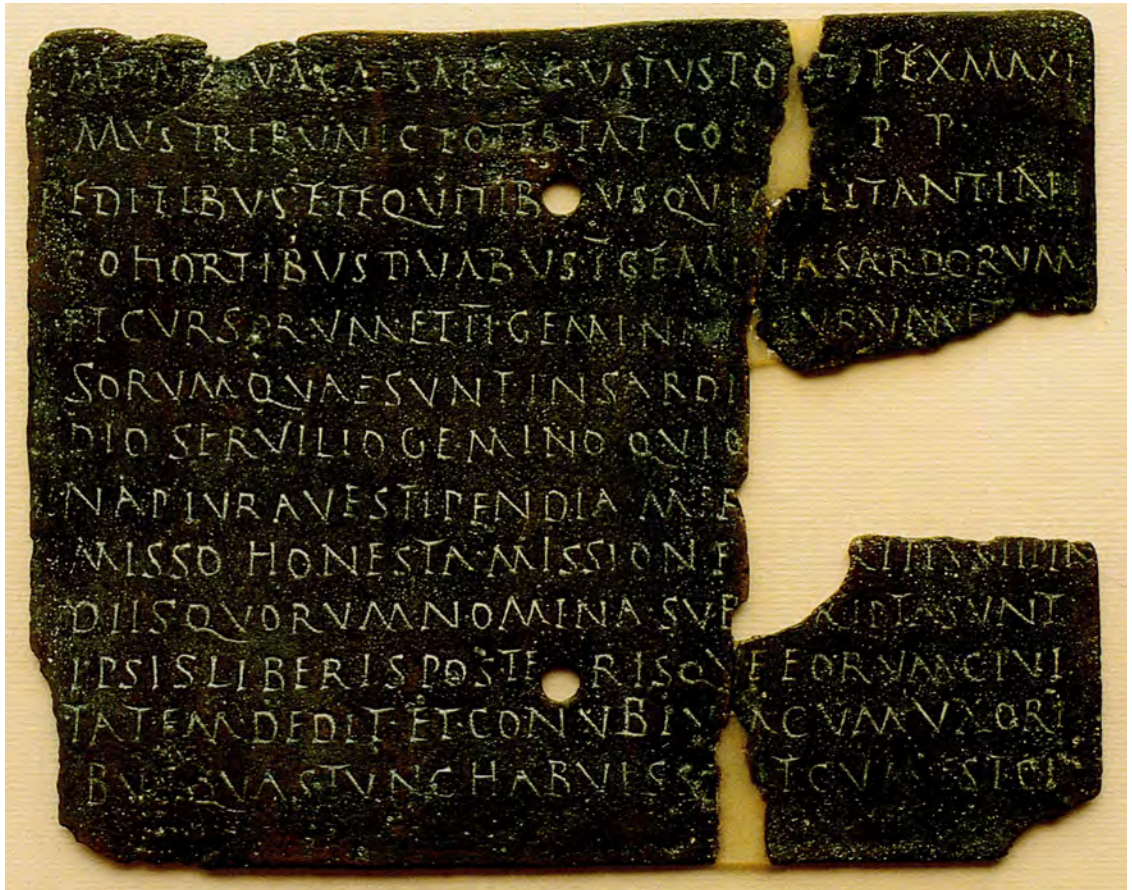 VA CAESAR AVGVSTVS PO T FEX MAXI
MVS TRIBVNIC POTESTAT COS P P
PEDITIBVS ET EQVITIBVS QVI MILITANT IN
COHORTIBVS DVABVS I GEMINA SARDORVM
ET CVRSORVM ET II GEMINA VRVM ET
SORVM QVAE SVNT IN SARDI
DIO SERVILIO GEMINO QVI
NA PLVRAVE STIPENDIA MER
MISSO HONESTA MISSIONE
DIIS QVORVM NOMINA SVB RIPTA SVNT
IPSIS LIBERIS POSTERISQVE EORVM CIVI
TATEM DEDIT ET CONVBIVM CVM VXORI
BVS QVAS TVNC HABVISS T CVM EST CI